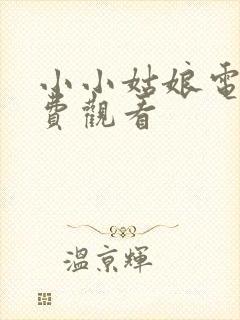 小小姑娘電
費觀看
溫京輝